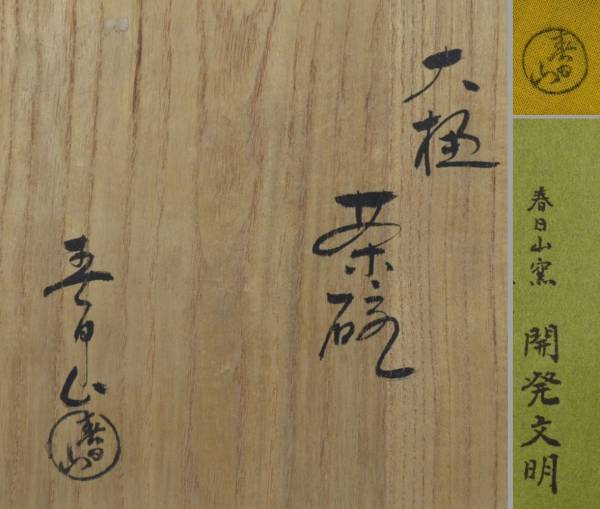 大極
茶碗
春日山
春日山
春日山
春日山窯
開発文明